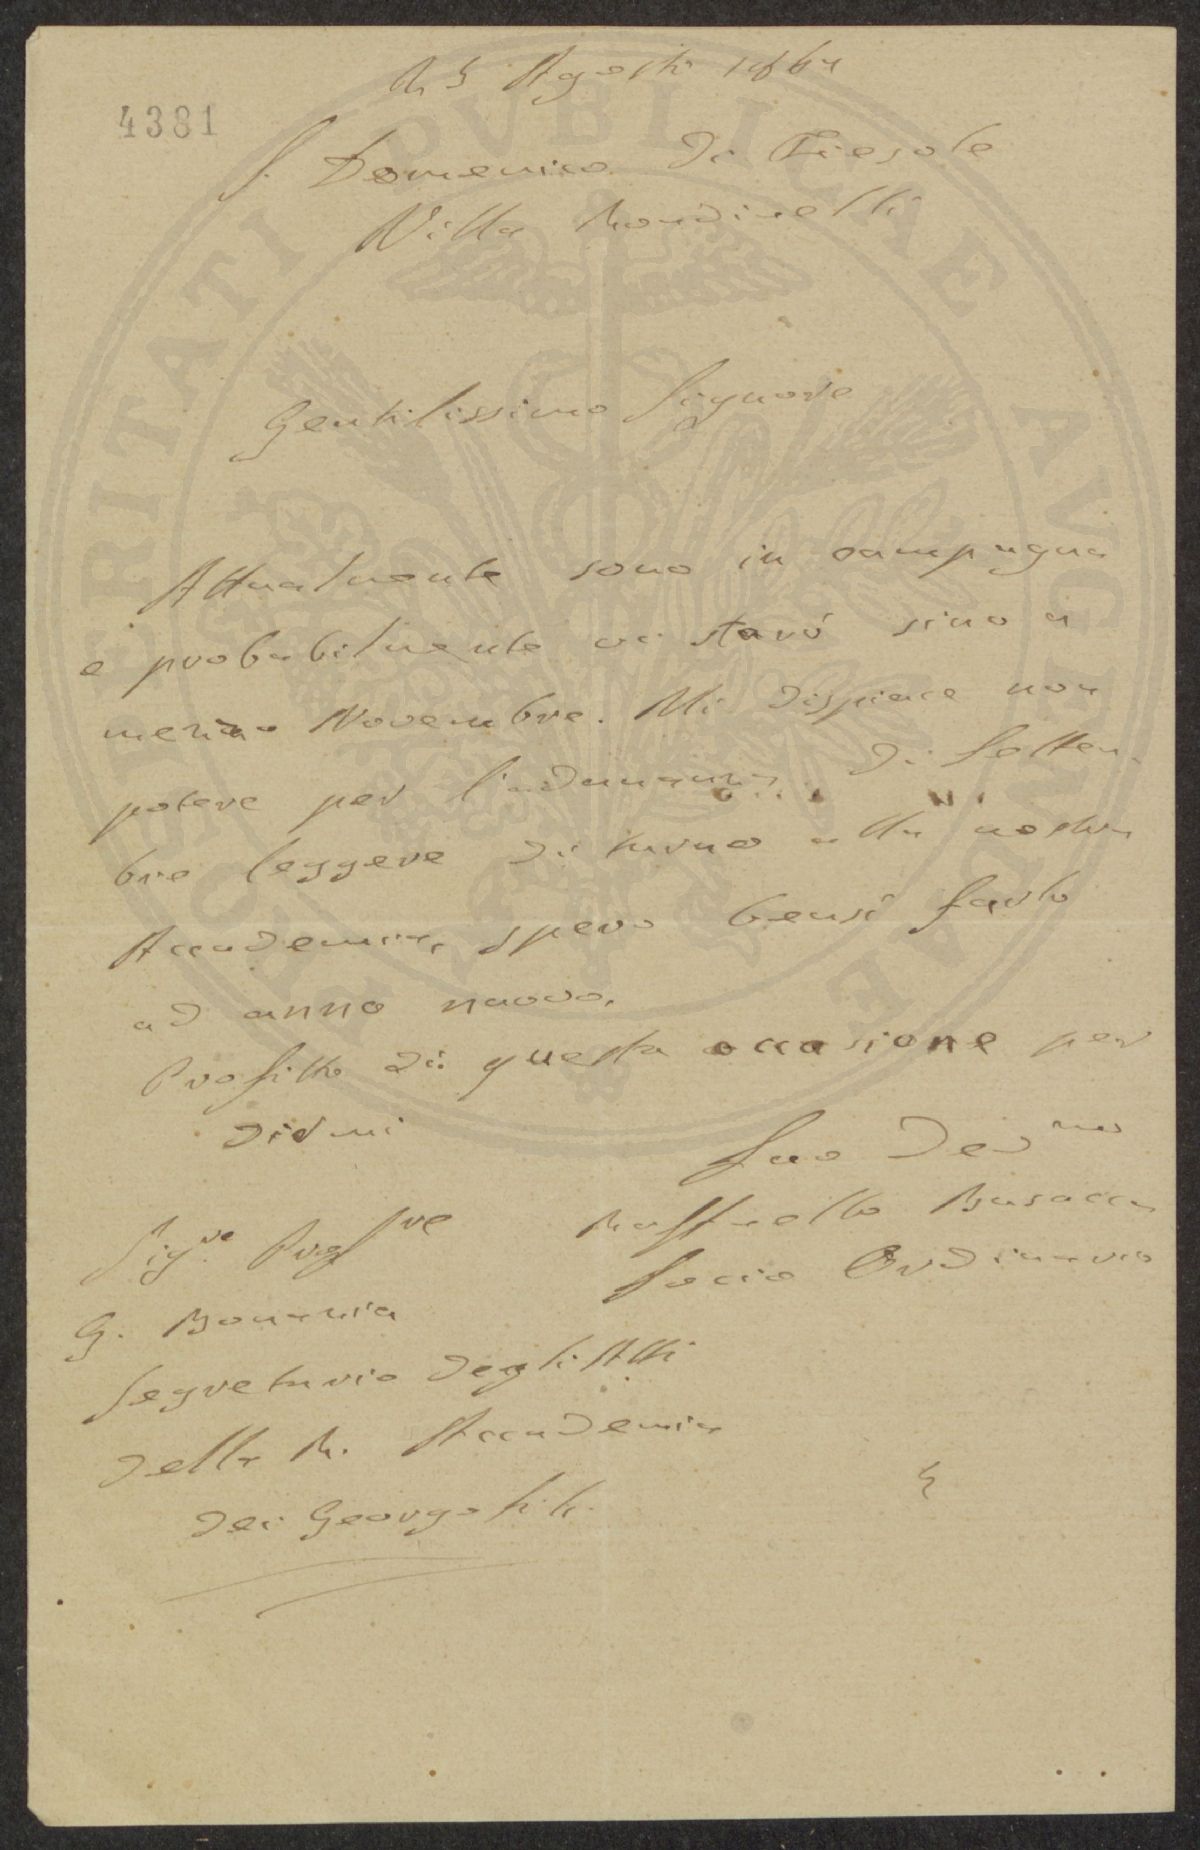 4381
5 Agosto
S. Domenico di Fiesole
Villa Rondinelli
Gentilissimo Signore
Attualmente sono in campagna
e probabilmente ci starò sino a
mezzo Novembre. Mi dispiace non
potere per l'adunanza di Settem
bre leggere di turno alla nostra
Accademia, spero bensì farlo
ad anno nuovo.
Profitto di questa occasione per
dirmi
Suo Dev mo
Raffaello Busacca
Socio Ordinario
Sig.re Prof
G. Bonamia
Segretario degli Atti
della R. Accademia
dei Georgofili
PROSPERITATI PVBLICAE AVGENDAE